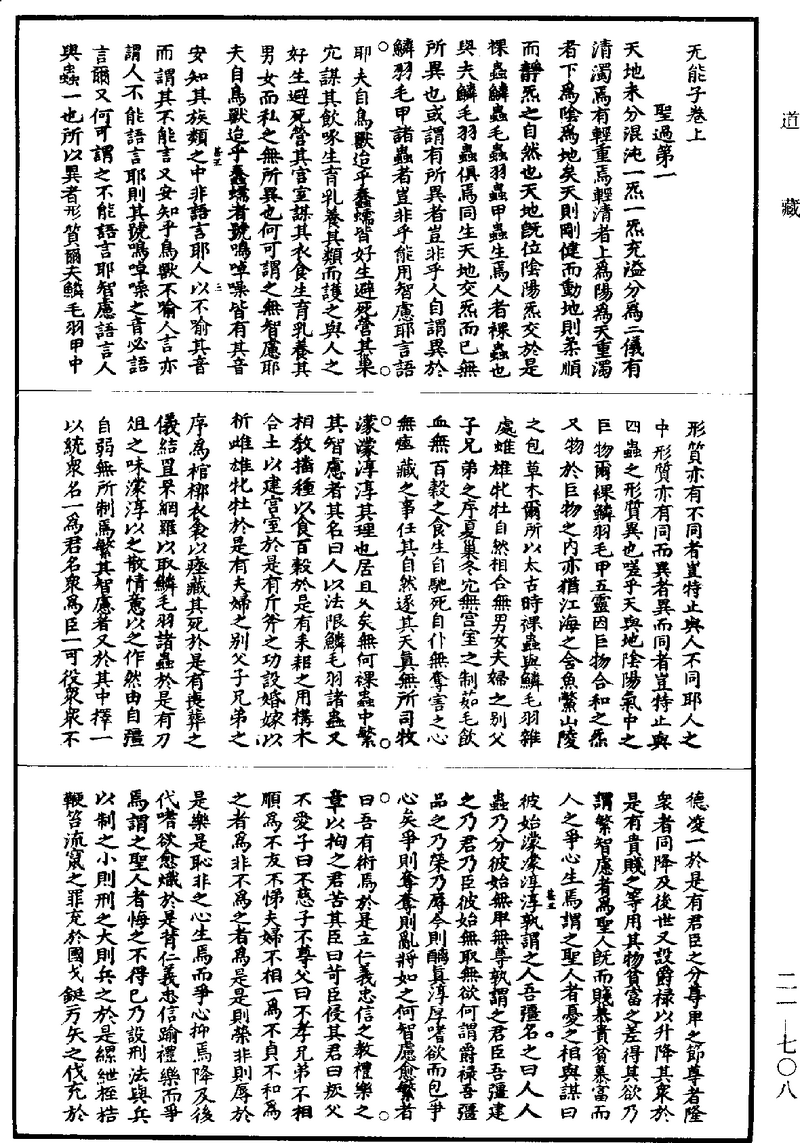 道藏
二一—七〇八
无能子卷上
聖過第一
天地未分混沌一炁一炁充溢分爲二儀有
清濁焉有輕重焉輕清者上爲陽爲天重濁
者下爲陰爲地矣天則剛健而動地則柔順
而靜炁之自然也天地旣位陰陽炁交於是
裸蟲鱗蟲毛蟲羽蟲甲蟲生焉人者裸蟲也
與夫鱗毛羽蟲俱焉同生天地交炁而已無
所異也或謂有所異者豈非乎人自謂異於
鱗羽毛甲諸蟲者豈非乎能用智慮耶言語
耶夫自鳥獸迨乎蠢蠕皆好生避死營其巢
穴謀其飲啄生育乳養其類而護之與人之
好生避死營其宮室謀其衣食生育乳養其
男女而私之無所異也何可謂之無智慮耶
夫自鳥獸迨乎蠢蠕者號鳴啅噪皆有其音
安知其族類之中非語言耶人以不喻其音
而謂其不能言又安知乎鳥獸不喻人言亦
謂人不能語言耶則其號鳴啅噪之音必語
言爾又何可謂之不能語言耶智慮語言人
與蟲一也所以異者形質爾夫鱗毛羽甲中
形質亦有不同者豈特止與人不同耶人之
中形質亦有同而異者異而同者豈特止與
四蟲之形質異也嗟乎天與地陰陽氣中之
巨物爾裸鱗羽毛甲五靈因巨物合和之炁
又物於巨物之內亦猶江海之含魚鱉山陵
之包草木爾所以太古時裸蟲與鱗毛羽雜
處雌雄牝牡自然相合無男女夫婦之別父
子兄弟之序夏巢冬穴無宮室之制茹毛飲
血無百穀之食生自馳死自仆無奪害之心
無瘞藏之事任其自然遂其天真無所司牧
濛濛淳淳其理也居且久矣無何裸蟲中繁
其智慮者其名曰人以法限鱗毛羽諸蟲又
相教播種以食百穀於是有耒耜之用構木
合土以建宮室於是有斤斧之功設婚嫁以
析雌雄牝牡於是有夫婦之別父子兄弟之
序爲棺槨衣衾以瘞藏其死於是有喪葬之
儀結罝罘網羅以取鱗毛羽諸蟲於是有刀
俎之味濛淳以之散情意以之作然由自强
自弱無所制焉繁其智慮者又於其中擇一
以統衆名一爲君名衆爲臣一可役衆衆不
德凌一於是有君臣之分尊卑之節尊者隆
衆者同降及後世又設爵禄以升降其衆於
是有貴賤之等用其物貧富之差得其欲乃
謂繁智慮者爲聖人旣而賤慕貴貧慕富而
人之爭心生焉謂之聖人者憂之相與謀曰
彼始濛濛淳淳孰謂之人吾彊名之曰人人
蟲乃分彼始無卑無尊孰謂之君臣吾彊建
之乃君乃臣彼始無取無欲何謂爵禄吾彊
品之乃榮乃辱今則醨真淳厚嗜欲而包爭
心矣爭則奪奪則亂將如之何智慮愈繁者
曰吾有術焉於是立仁義忠信之教禮樂之
章以拘之君苦其臣曰苛臣侵其君曰叛父
不愛子曰不慈子不尊父曰不孝兄弟不相
順爲不友不悌夫婦不相一爲不貞不和爲
之者爲非不爲之者爲是是則榮非則辱於
是樂是恥非之心生焉而爭心抑焉降及後
代嗜欲愈熾於是背仁義忠信踰禮樂而爭
焉謂之聖人者悔之不得已乃設刑法與兵
以制之小則刑之大則兵之於是縲紲桎梏
鞭笞流竄之罪充於國戈鋋弓矢之伐充於